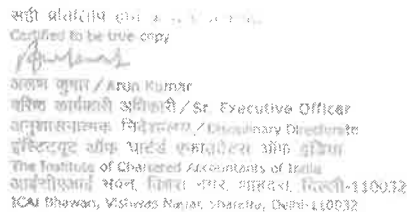 सही प्रतिलिपि होने
Certified to be true copy
अरुण कुमार / Arun Kumar
वरिष्ठ कार्यकारी अधिकारी / Sr. Executive Officer
अनुशासनात्मक निदेशालय / Disciplinary Directorate
इंस्टिट्यूट ऑफ चार्टर्ड एकाउंटेंट्स ऑफ इंडिया
The Institute of Chartered Accountants of India
आईसीएआई भवन, विश्वास नगर, शाहदरा, दिल्ली-110032
ICAI Bhawan, Vishwas Nagar, Shahdra, Delhi-110032